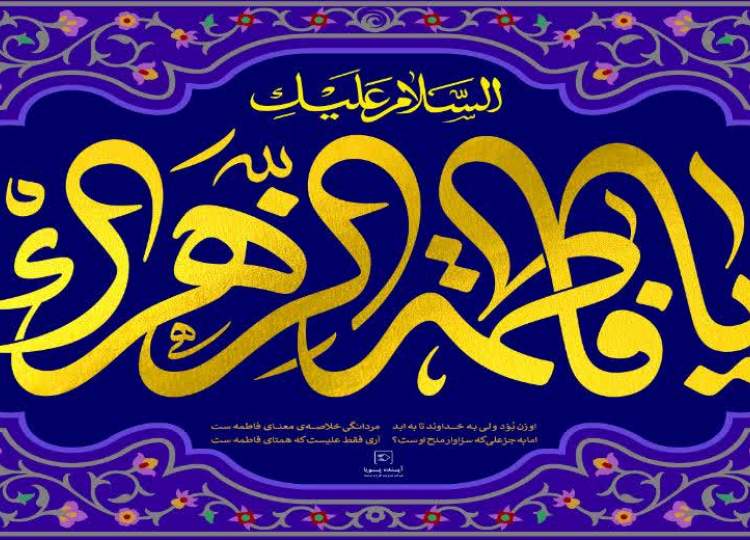 السَّلام عَلَيكِ
يا فاطمة الزهراء
او زن بُوَد ولی به خداوند تا به ابد
مردانگی خلاصه‌ی معنای فاطمه ست
اما به جز علی که سزاوار مدح اوست؟
آری فقط علیست که همتای فاطمه ست
آینده پویا